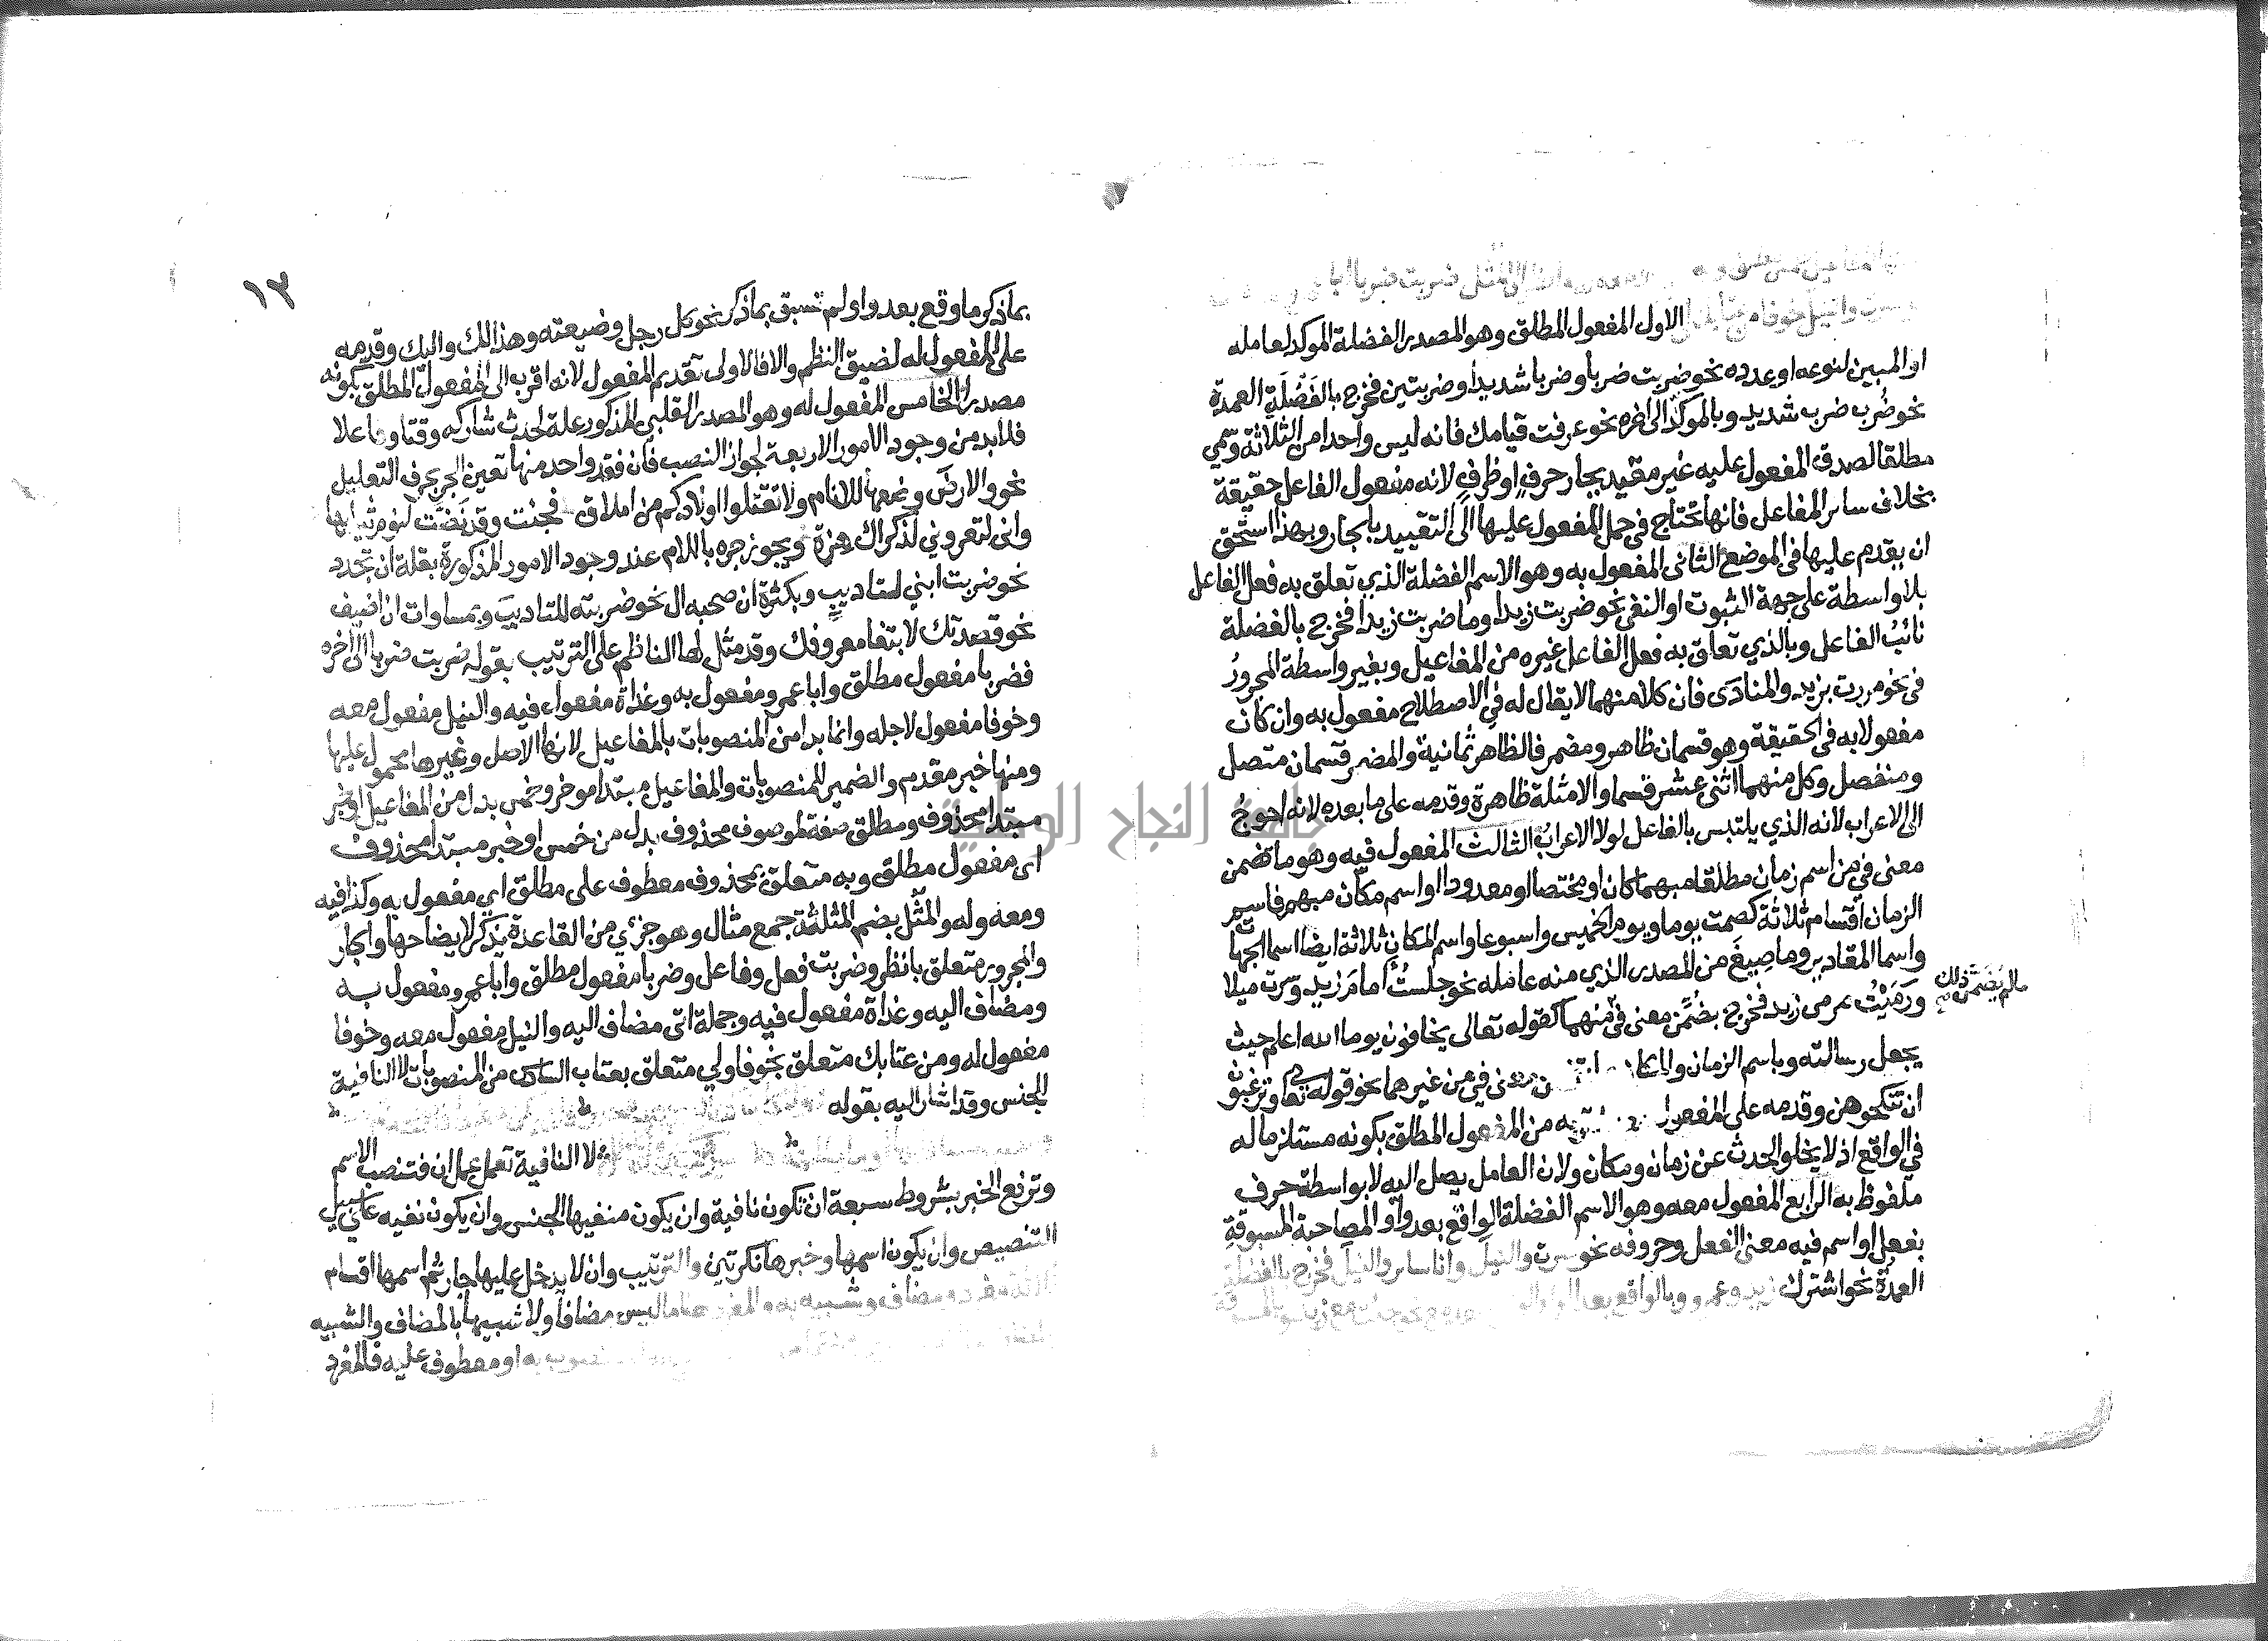 ضربت ضربا ابا
الاول المفعول المطلق وهو المصدر الفضلة الموكد لعامله
او المبين لنوعه او عدده نحو ضربت ضربا وضربا شديدا وضربتين فخرج بالفَضْلَةِ العمدة
نحو ضُرب ضرب شديد وبالموكّد الى اخره نحو عرفت قيامك فانه ليس واحدا من الثلاثة وسمي
مطلقا لصدق المفعول عليه غير مقيد بجار حرفٍ او ظرفٍ لانه مفعول الفاعل حقيقة
بخلاف ساير المفاعل فانها تحتاج في حمل المفعول عليها الى التقييد بالجار وبهذا استحق
ان يقدم عليها في الموضع الثانى المفعول به وهو الاسم الفضلة الذي تعلق به فعل الفاعل
بلا واسطة على جهة الثبوت او النفى نحو ضربت زيدا وما ضربت زيدا فخرج بالفضلة
نائبُ الفاعل وبالذي تعلق به فعل الفاعل غيره من المفاعيل وبغير واسطة المجرورُ
في نحو مررت بزيد والمنادَى فان كلا منهما لا يقال له في الاصطلاح مفعول به وان كان
مفعولا به في الحقيقة وهو قسمان ظاهر ومضمر فالظاهر ثمانية والمضمر قسمان متصل
ومنفصل وكل منهما اثنى عشر قسما والامثلة ظاهرة وقدمه على ما بعده لانه احوجُ
الى الاعراب لانه الذي يلتبس بالفاعل لولا الاعرابُ الثالث المفعول فيه وهو ما تضمن
معنى في من اسم زمان مطلقا مبهما كان او مختصا او معدودا او اسم مكان مبهم فاسم
الزمان اقسام ثلاثة كصمت يوما ويوم الخميس واسبوعا واسم المكان ثلاثة ايضا اسما الجهات
واسما المقادير وما صِيغَ من المصدر الذي منه عامله نحو جلستُ امامَ زيد وسرت ميلا
ورَمَيْتُ مرمى زيد فخرج بضُمّن معنى في منهما كقوله تعالى يخافون يوما الله اعلم حيث
مالم يَضمن ذلك
يجعل رسالته وباسم الزمان والمكان معنى في من غيرهما نحو قوله تعا وترغبون
ان تنكحوهن وقدمه على المفعول من المفعول المطلق بكونه مستلزما له
في الواقع اذ لا يخلو الحدث عن زمان ومكان ولان العامل يصل اليه لا بواسطة حرف
ملفوظ به الرابع المفعول معه وهو الاسم الفضلة الواقع بعد واو المصاحبة المسبوقة
بفعل او اسم فيه معنى الفعل وحروفه نحو سرت والنيل وانا ساير والنيل فخرج بالفضلة
العمدة نحو اشترك زيد وعمرو وبالواقع بعد الواو
١٢
بما ذكر ما وقع بعد واو لم تسبق بما ذكر نحو كل رجل وضيعته وهذا لك واليك وقدمه
على المفعول له لضيق النظم والا فالاولى تقديم المفعول لانه اقرب الى المفعول المطلق بكونه
مصدرا الخامس المفعول له وهو المصدر القلبي المذكور علة لحدث شاركه وقتا وفاعلا
فلا بد من وجود الامور الاربعة لجواز النصب فان فقد واحد منها تعين الجر بحرف التعليل
نحو والارض وضعها للانام ولا تقتلوا اولادكم من املاق فجئت وقد نَضَّت لنوم ثيابها
واني لتعروني لذكراك هِزة ويجوز جره باللام عند وجود الامور المذكورة بقلة ان تجرد
نحو ضربت ابني لتاديبٍ وبكثرة ان صحبه ال نحو ضربته للتاديب وبمساوات ان اضيف
نحو قصدتك لابتغا معروفك وقد مثل لها الناظم على الترتيب بقوله ضربت ضربا الى اخره
فضربا مفعول مطلق وابا عمرو مفعول به وغداة مفعول فيه والنيل مفعول معه
وخوفا مفعول لاجله وانما بدا من المنصوبات بالمفاعيل لانها الاصل وغيرها محمول عليها
ومنها خبر مقدم والضمير للمنصوبات والمفاعيل مبتدا موخر وخمس بدل من المفاعيل او خبر
مبتدا محذوف ومطلق صفة لموصوف محذوف بدل من خمس او خبر مبتدا محذوف
اى مفعول مطلق وبه متعلق بمحذوف معطوف على مطلق اي مفعول به وكذا فيه
ومعه وله والمثل بضم المثلثة جمع مثال وهو جزئي من القاعدة يذكر لايضاحها والجار
والمجرور متعلق بانظر وضربت فعل وفاعل وضربا مفعول مطلق وابا عمرو مفعول به
ومضاف اليه وغداة مفعول فيه وجملة اتى مضاف اليه والنيل مفعول معه وخوفا
مفعول له ومن عتابك متعلق بخوفا ولي متعلق بعتاب السادس من المنصوبات لا النافية
للجنس وقد اشار اليه بقوله
لا النافية تعمل عمل ان فتنصب الاسم
وترفع الخبر بشروط سبعة ان تكون نافية وان يكون منفيها الجنس وان يكون نفيه على سبيل
التنصيص وان يكون اسمها وخبرها نكرتين والترتيب وان لا يدخل عليها جار ثم اسمها اقسام
ومضاف وشبيه به ما ليس مضافا ولا شبيها بالمضاف والشبيه
به او معطوف عليه فالمفرد
جامعة النجاح الوطنية